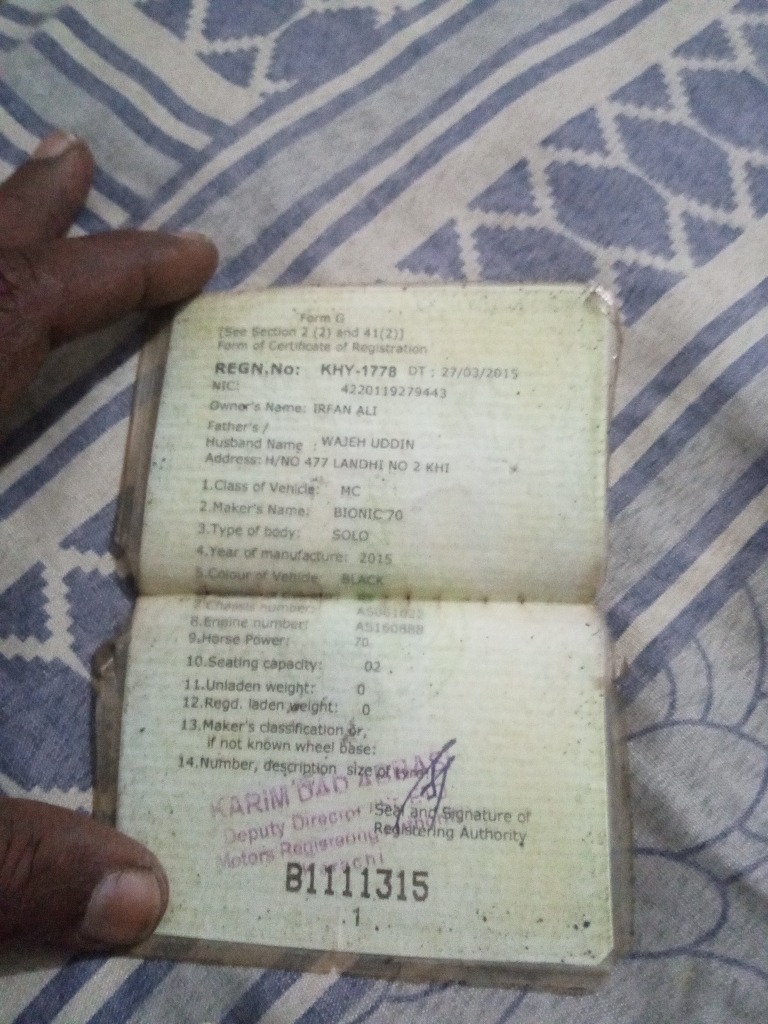 Form G
[See Section 2 (2) and 41(2)]
Form of Certificate of Registration
REGN.No: KHY-1778 DT : 27/03/2015
NIC: 4220119279443
Owner's Name: IRFAN ALI
Father's /
Husband Name : WAJEH UDDIN
Address: H/NO 477 LANDHI NO 2 KHI
1.Class of Vehicle: MC
2.Maker's Name: BIONIC 70
3.Type of body: SOLO
4.Year of manufacture: 2015
5.Colour of Vehicle BLACK
7.Chassis number:
8.Engine number: AS160888
9.Horse Power: 70
10.Seating capacity: 02
11.Unladen weight: 0
12.Regd. laden weight: 0
13.Maker's classification or,
if not known wheel base:
14.Number, description size of
KARIM DAD ABBASI
Deputy Director
Seal and Signature of
Motors Registering
Registering Authority
Karachi
B1111315
1